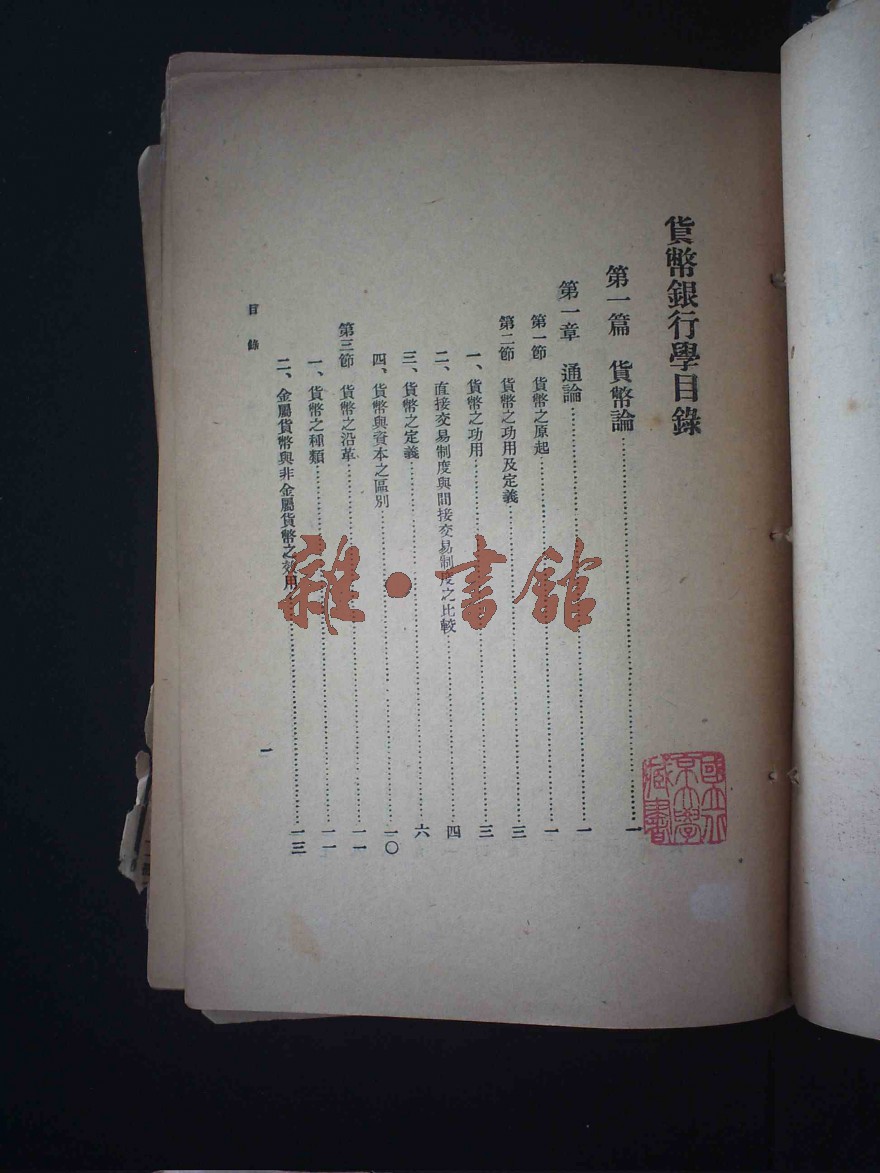 貨幣銀行學目錄
第一篇 貨幣論……一
第一章 通論……一
第一節 貨幣之原起……一
第二節 貨幣之功用及定義……三
一、貨幣之功用……三
二、直接交易制度與間接交易制度之比較……四
三、貨幣之定義……六
四、貨幣與資本之區別……一〇
第三節 貨幣之沿革……一一
一、貨幣之種類……一一
二、金屬貨幣與非金屬貨幣之效用……一三
目錄
一
雜·書館
國立北
京大學
藏書